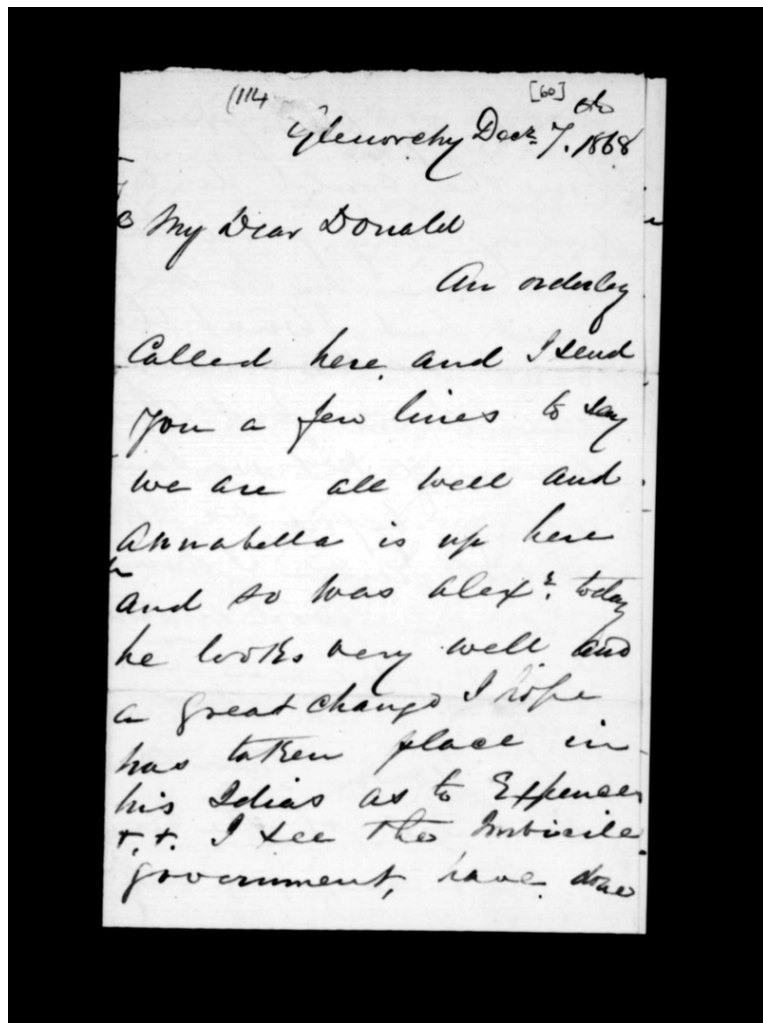 (114 [60]
Glenorchy Decr 7. 1868
My Dear Donald
An orderley
Called here and I send
you a few lines to say
we are all well and
Annabella is up here
and so was Alexr. today
he looks very well and
a great change I hope
has taken place in
his Idias as to Expences
+. +. I see the Imbicile
government, have done